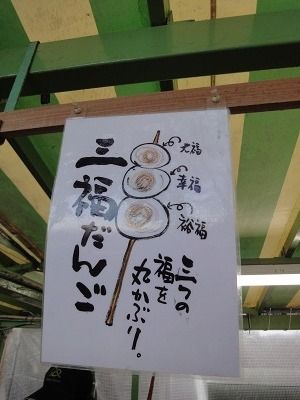 三福だんご
大福
幸福
裕福
三つの
福を
丸かぶり。